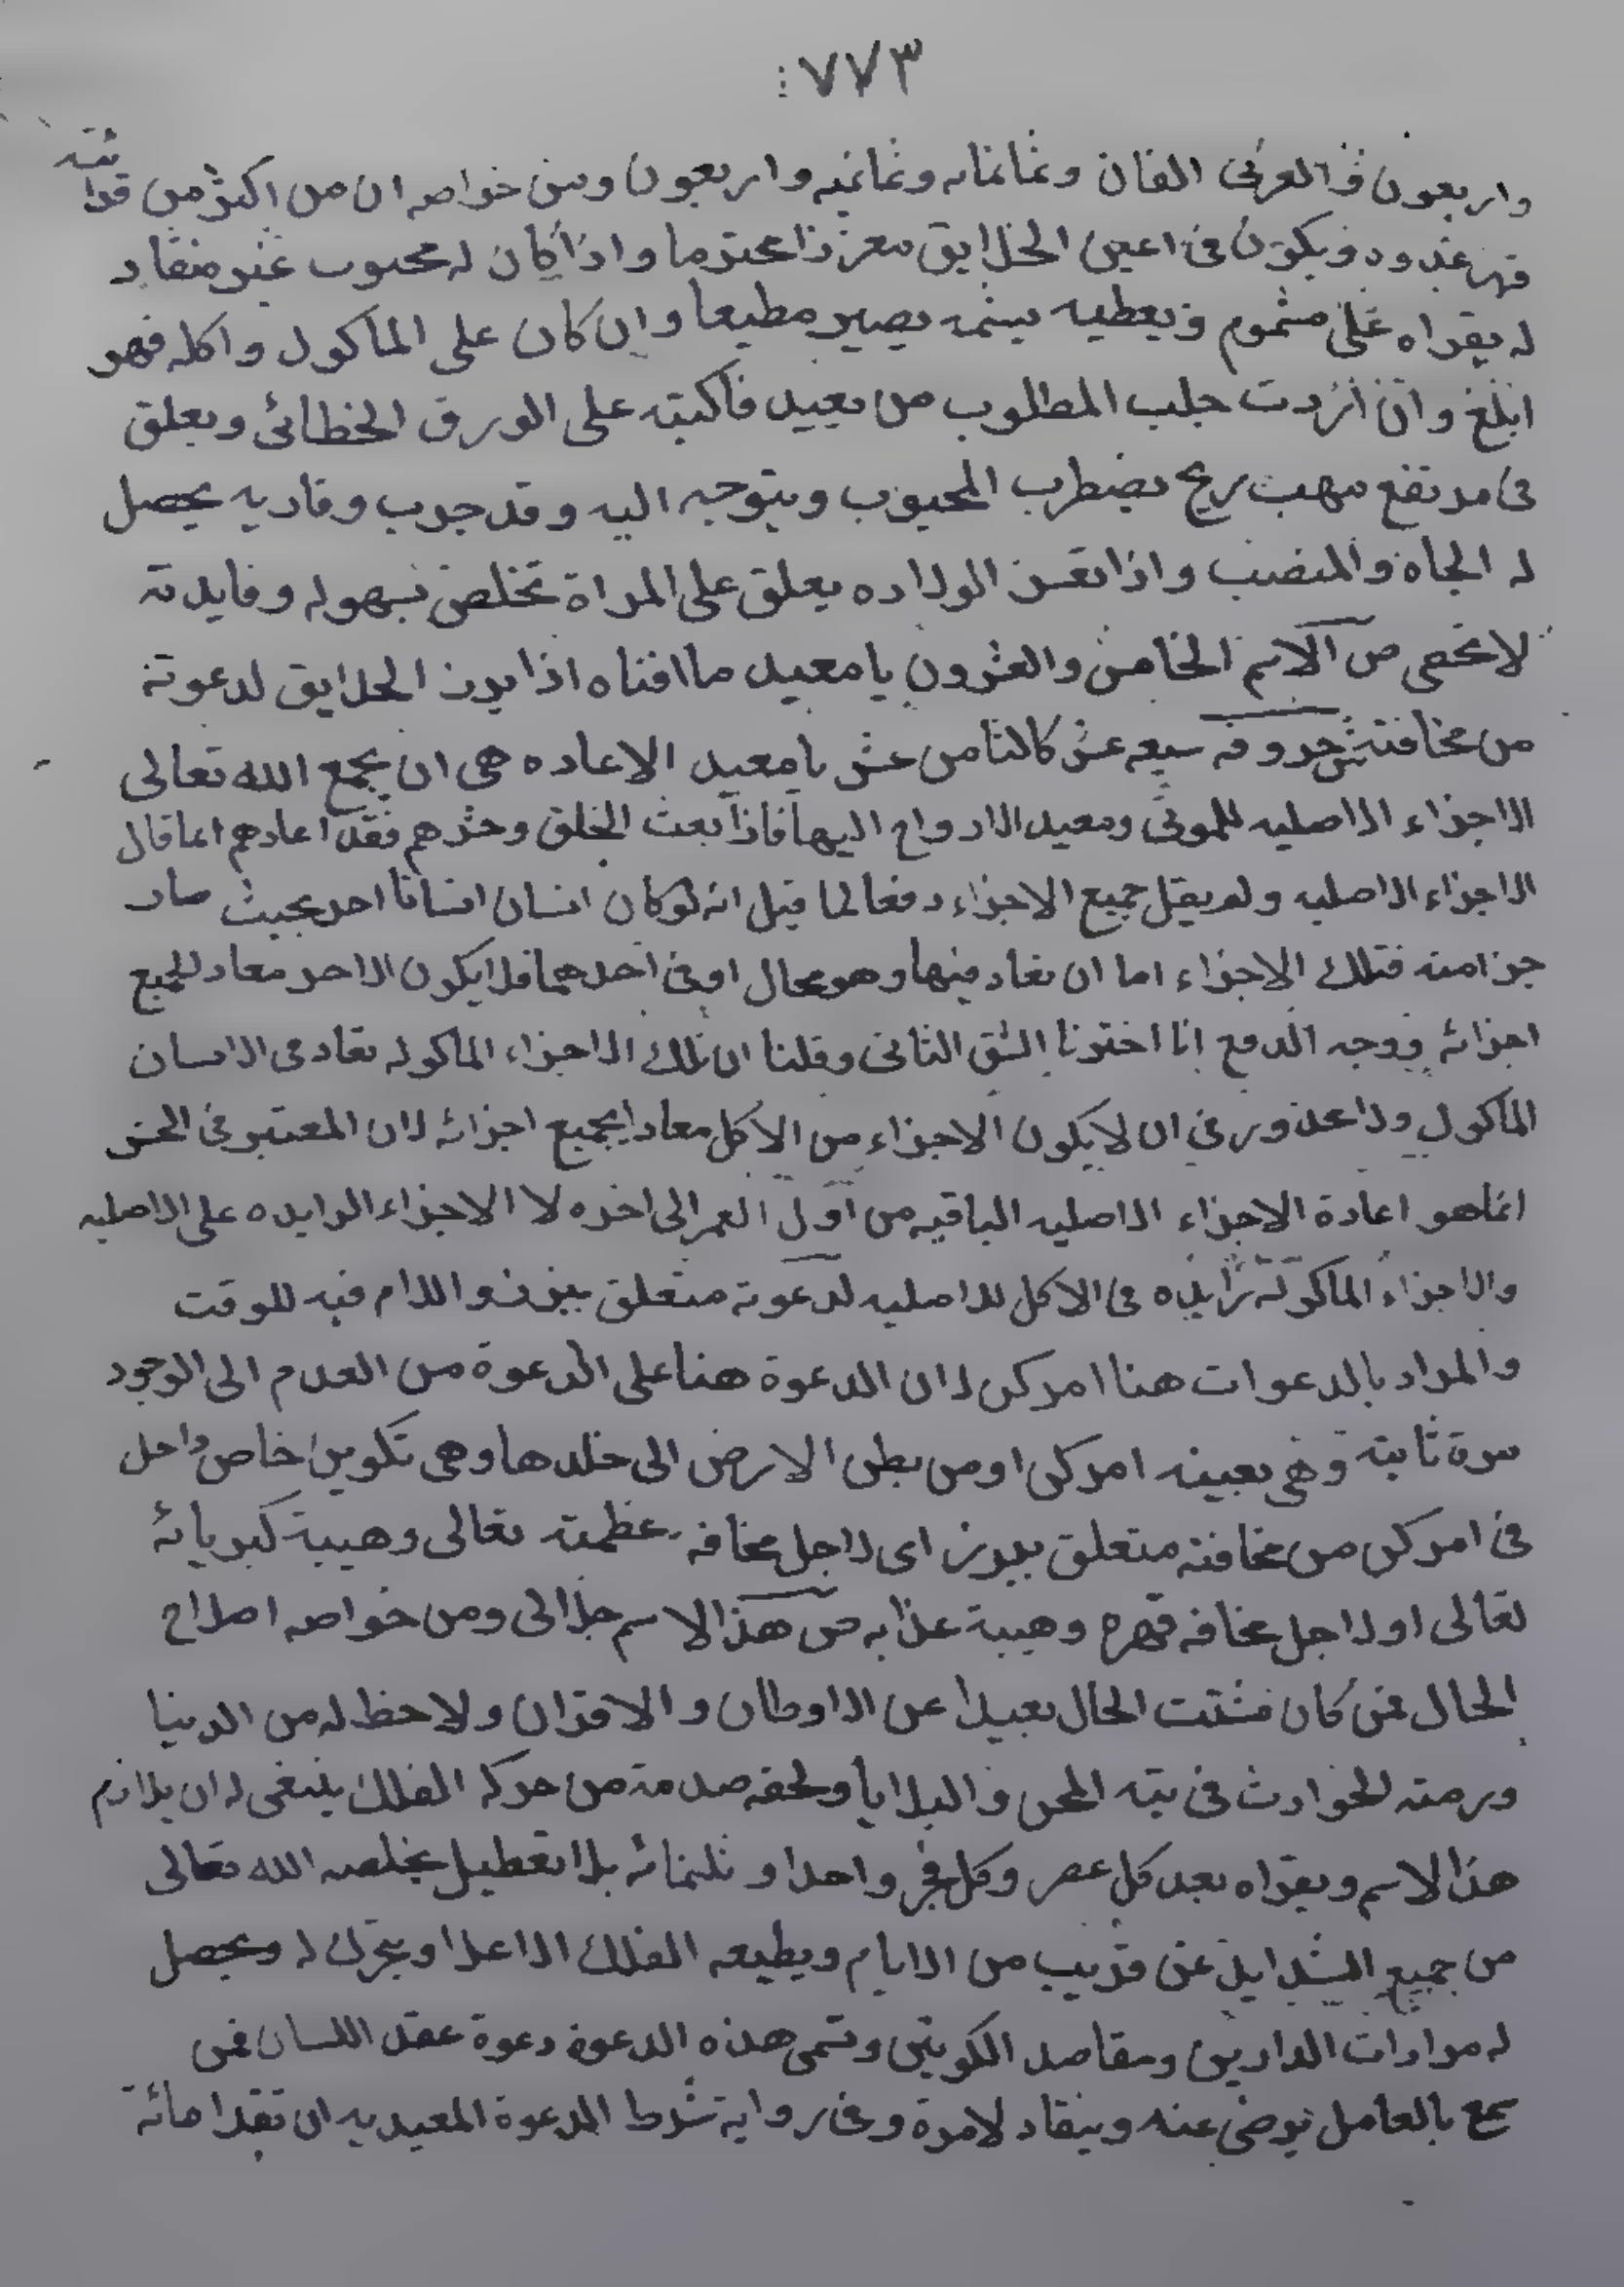 ٧٧٣:
واربعون والعربى الفان وثمانمايه وثمانيه واربعون ومن خواصه ان من اكثر من قرائته
قهر عدوه ويكون فى اعين الخلايق معززا محترما واذا كان له محبوب غير منقاد
له يقراه على مشموم ويعطيه يشمه يصير مطيعا وان كان على الماكول واكله فهو
ابلغ وان اردت جلب المطلوب من بعيد فاكتبه على الورق الخطائى ويعلق
فى مرتفع مهب ريح يضطرب المحبوب ويتوجه اليه وقد جرب وقاريه يحصل
له الجاه والمنصب واذا تعسر الولاده يعلق على المراة تخلص بسهوله وفايدته
لا تخفى ص الاسم الخامس والعشرون يا معيد ما افناه اذا برز الخلايق لدعوته
من مخافته ش حروفه سبعه عشر كالثامن عشر يا معيد الاعاده هى ان يجمع الله تعالى
الاجزاء الاصليه للموتى ومعيد الارواح اليها فاذا بعث الخلق وحشرهم فقد اعادهم انما قال
الاجزاء الاصليه ولم يقل جميع الاجزاء دفعا لما قيل انه لو كان انسان انسانا احد بحيث صار
جزا منه فتلك الاجزاء اما ان تعاد فيهما وهو محال او فى احدهما فلا يكون الاحر معاد لجميع
اجزائه ووجه الدفع انا اخترنا الشق الثانى وقلنا ان تلك الاجزاء الماكوله تعاد فى الانسان
الماكول ولا محذور فى ان لا يكون الاجزاء من الاكل معادا بجميع اجزائه لان المعتبر فى الحشر
انما هو اعادة الاجزاء الاصليه الباقيه من اول العمر الى اخره لا الاجزاء الزايده على الاصليه
والاجزاء الماكوله زايده فى الاكل للاصليه لدعوته متعلق ببرز واللام فيه للوقت
والمراد بالدعوات هنا امر كن لان الدعوة هنا على الدعوة من العدم الى الوجود
مرة ثانيه وهى بعينه امر كن او من بطن الارض الى خلدها وهى تكوين خاص داخل
فى امر كن من مخافته متعلق ببرز اى لاجل مخافه عظمته تعالى وهيبة كبريائه
تعالى او لاجل مخافه قهره وهيبة عذابه ص هذا الاسم جلالى ومن خواصه اصلاح
الحال فمن كان مشتت الحال بعيدا عن الاوطان والاقران ولا حظ له من الدنيا
ورمته الحوادث فى تيه المحن والبلايا ولحقه صدمة من حركه الفلك ينبغى له ان يلازم
هذا الاسم ويقراه بعد كل عصر وكل فجر واحدا وثلثمائه بلا تعطيل يخلصه الله تعالى
من جميع الشدايد عن قريب من الايام ويطيعه الفلك الاعلا ويتحرك له ويحصل
له مرادات الدارين ومقاصد الكونين وتسمى هذه الدعوة دعوة عقد اللسان فمن
سمع بالعامل يرضى عنه وينقاد لامره وفى رواية شرط الدعوة المعيديه ان تقرا مائة